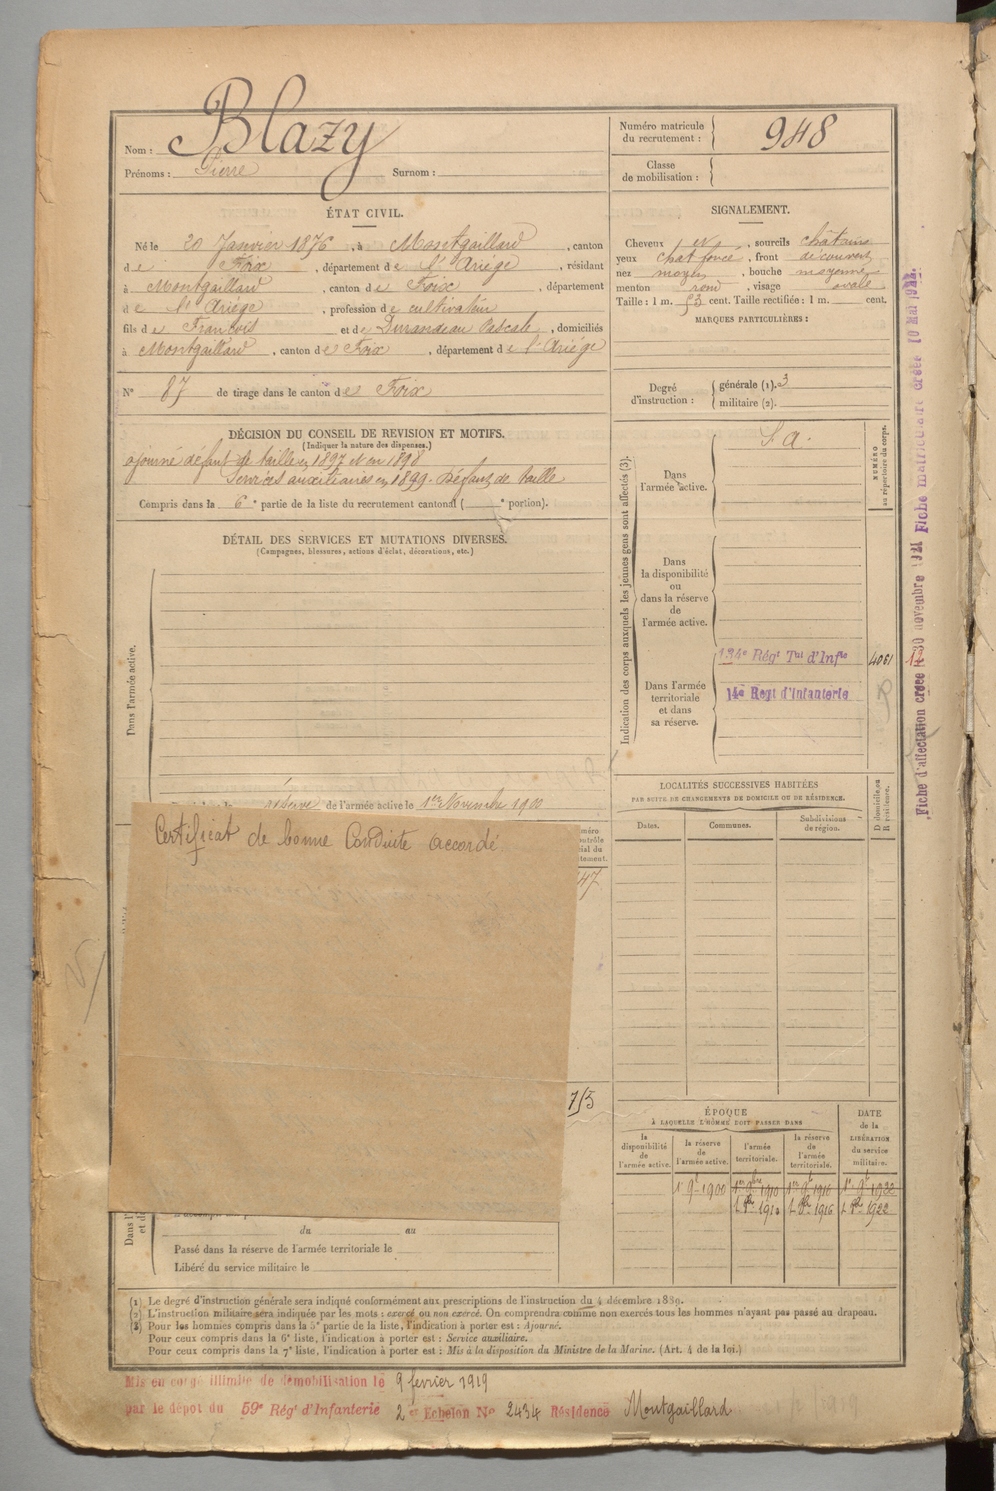 Nom : Blazy
Prénoms : Pierre Surnom :
Numéro matricule du recrutement : 948
Classe de mobilisation :
ÉTAT CIVIL.
Né le 20 Janvier 1876, à Montgaillard, canton
de Foix, département de l'Ariège, résidant
à Montgaillard, canton de Foix, département
de l'Ariège, profession de cultivateur
fils de François et de Durandeau Pascale, domiciliés
à Montgaillard, canton de Foix, département de l'Ariège
N° 87 de tirage dans le canton de Foix
SIGNALEMENT.
Cheveux et, sourcils châtains
yeux chat foncé, front découvert
nez moyen, bouche moyenne
menton rond, visage ovale
Taille : 1 m. 53 cent. Taille rectifiée : 1 m. cent.
MARQUES PARTICULIÈRES :
Degré d'instruction : générale (1). 3
militaire (2).
DÉCISION DU CONSEIL DE REVISION ET MOTIFS.
(Indiquer la nature des dispenses.)
ajourné défaut de taille en 1897 et en 1898
Services auxiliaires en 1899. Défaut de taille
Compris dans la 6e partie de la liste du recrutement cantonal ( e portion).
DÉTAIL DES SERVICES ET MUTATIONS DIVERSES.
(Campagnes, blessures, actions d'éclat, décorations, etc.)
Dans l'armée active.
réserve de l'armée active le 1er Novembre 1900
Certificat de bonne Conduite accordé.
47
7/3
du au
Passé dans la réserve de l'armée territoriale le
Libéré du service militaire le
Indication des corps auxquels les jeunes gens sont affectés (3).
NUMÉRO au répertoire du corps.
Dans l'armée active.
S. a.
Dans la disponibilité ou dans la réserve de l'armée active.
134e Régt Tal d'Infie 4061 12
Dans l'armée territoriale et dans sa réserve.
14e Regt d'Infanterie
LOCALITÉS SUCCESSIVES HABITÉES
PAR SUITE DE CHANGEMENTS DE DOMICILE OU DE RÉSIDENCE.
Dates. Communes. Subdivisions de région. D domicile ou R résidence.
ÉPOQUE
À LAQUELLE L'HOMME DOIT PASSER DANS
DATE de la LIBÉRATION du service militaire.
la disponibilité de l'armée active. la réserve de l'armée active. l'armée territoriale. la réserve de l'armée territoriale.
1r 9bre 1900 1er 9bre 1910 1er 9bre 1916 1r 9bre 1922
1 8bre 1910 1 8bre 1916 1 8bre 1922
Fiche d'affectation créée le 30 novembre 1921 Fiche matriculaire créée 10 Mai 1922.
(1) Le degré d'instruction générale sera indiqué conformément aux prescriptions de l'instruction du 4 décembre 1889.
(2) L'instruction militaire sera indiquée par les mots : exercé ou non exercé. On comprendra comme non exercés tous les hommes n'ayant pas passé au drapeau.
(3) Pour les hommes compris dans la 5e partie de la liste, l'indication à porter est : Ajourné.
Pour ceux compris dans la 6e liste, l'indication à porter est : Service auxiliaire.
Pour ceux compris dans la 7e liste, l'indication à porter est : Mis à la disposition du Ministre de la Marine. (Art. 4 de la loi.)
Mis en congé illimité de démobilisation le 9 février 1919
par le dépôt du 59e Régt d'Infanterie 2e Echelon No 2434 Résidence Montgaillard